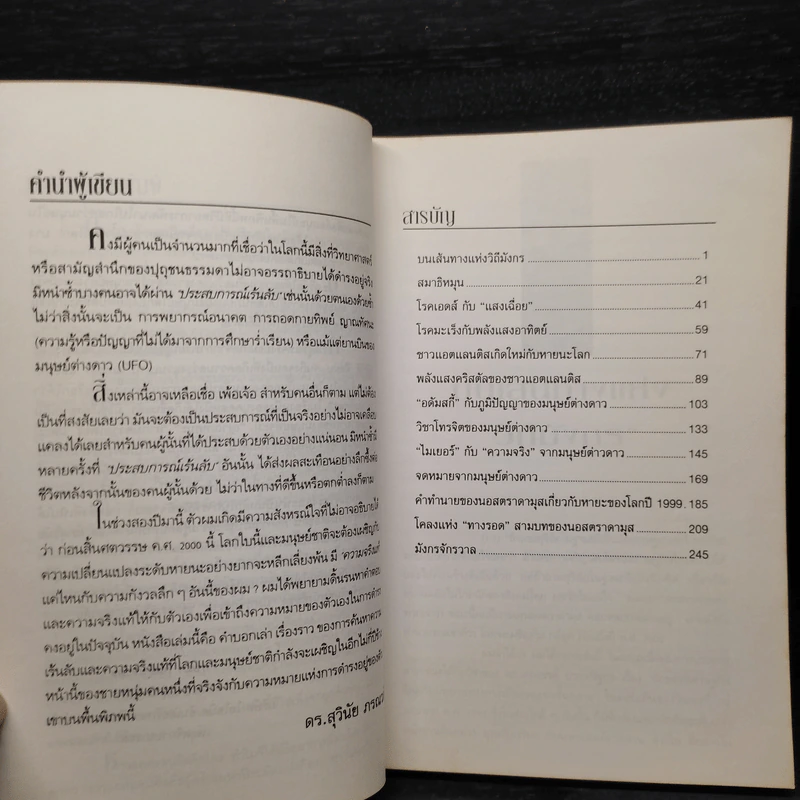 คำนำผู้เขียน
คงมีผู้คนเป็นจำนวนมากที่เชื่อว่าในโลกนี้มีสิ่งที่วิทยาศาสตร์
หรือสามัญสำนึกของปุถุชนธรรมดาไม่อาจอรรถาธิบายได้ดำรงอยู่จริง
มิหนำซ้ำบางคนอาจได้ผ่าน "ประสบการณ์เร้นลับ" เช่นนั้นด้วยตนเองด้วยซ้ำ
ไม่ว่าสิ่งนั้นจะเป็น การพยากรณ์อนาคต การถอดกายทิพย์ ญาณทัศนะ
(ความรู้หรือปัญญาที่ไม่ได้มาจากการศึกษาร่ำเรียน) หรือแม้แต่ยานบินของ
มนุษย์ต่างดาว (UFO)
สิ่งเหล่านี้อาจเหลือเชื่อ เพ้อเจ้อ สำหรับคนอื่นก็ตาม แต่ไม่ต้อง
เป็นที่สงสัยเลยว่า มันจะต้องเป็นประสบการณ์ที่เป็นจริงอย่างไม่อาจเคลือบ
แคลงได้เลยสำหรับคนผู้นั้นที่ได้ประสบด้วยตัวเองอย่างแน่นอน มิหนำซ้ำมี
หลายครั้งที่ "ประสบการณ์เร้นลับ" อันนั้น ได้ส่งผลสะเทือนอย่างลึกซึ้งต่อ
ชีวิตหลังจากนั้นของคนผู้นั้นด้วย ไม่ว่าในทางที่ดีขึ้นหรือตกต่ำลงก็ตาม
ในช่วงสองปีมานี้ ตัวผมเกิดมีความสังหรณ์ใจที่ไม่อาจอธิบายได้
ว่า ก่อนสิ้นศตวรรษ ค.ศ. 2000 นี้ โลกใบนี้และมนุษยชาติจะต้องเผชิญกับ
ความเปลี่ยนแปลงระดับหายนะอย่างยากจะหลีกเลี่ยงพ้น มี "ความจริงแท้"
แค่ไหนกับความกังวลลึก ๆ อันนี้ของผม ? ผมได้พยายามดิ้นรนหาคำตอบ
และความจริงแท้ให้กับตัวเองเพื่อเข้าถึงความหมายของตัวเองในการดำรง
คงอยู่ในปัจจุบัน หนังสือเล่มนี้คือ คำบอกเล่า เรื่องราว ของการค้นหาความ
เร้นลับและความจริงแท้ที่โลกและมนุษยชาติกำลังจะเผชิญในอีกไม่กี่ปีข้าง
หน้านี้ของชายหนุ่มคนหนึ่งที่จริงจังกับความหมายแห่งการดำรงอยู่ของตัว
เขาบนพื้นพิภพนี้
ดร.สุวินัย
สารบัญ
บนเส้นทางแห่งวิถีมังกร 1
สมาธิหมุน 21
โรคเอดส์ กับ "แสงเฉื่อย" 41
โรคมะเร็งกับพลังแสงอาทิตย์ 59
ชาวแอตแลนติสเกิดใหม่กับหายนะโลก 71
พลังแสงคริสตัลของชาวแอตแลนติส 89
"อดัมสกี้" กับภูมิปัญญาของมนุษย์ต่างดาว 103
วิชาโทรจิตของมนุษย์ต่างดาว 133
"ไมเยอร์" กับ "ความจริง" จากมนุษย์ต่าวดาว 145
จดหมายจากมนุษย์ต่างดาว 169
คำทำนายของนอสตราดามุสเกี่ยวกับหายะของโลกปี 1999. 185
โคลงแห่ง "ทางรอด" สามบทของนอสตราดามุส 209
มังกรจักรวาล 245